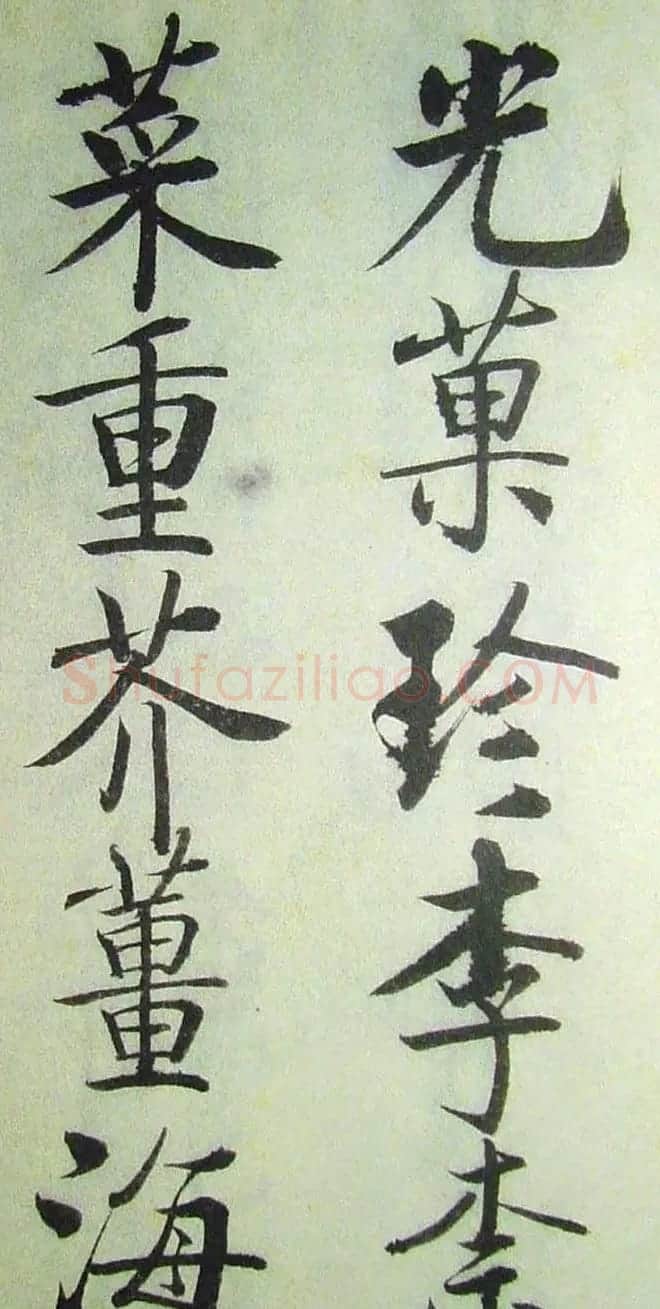 光菓珍李柰
菜重芥薑海
Shufaziliao.COM